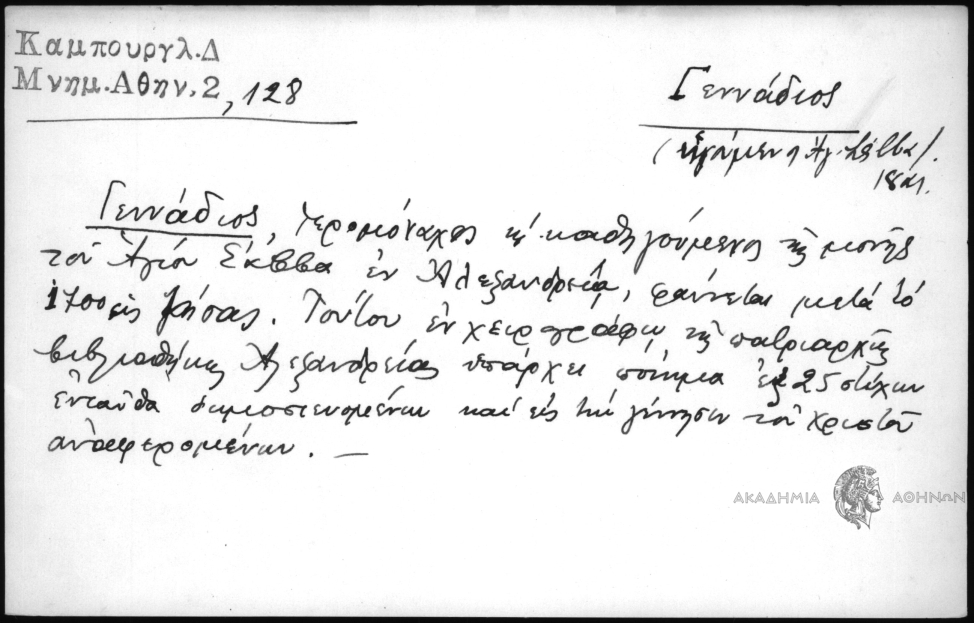 Καμπουργλ.Δ
Μνημ.Αθην.2, 128
Γεννάδιος
(ἡγούμεν. Ἁγ. Σάββα).
18 αἰ.
Γεννάδιος, ἱερομόναχος κ' καθηγούμενος τῆς μονῆς
τοῦ Ἁγίου Σάββα ἐν Ἀλεξανδρείᾳ, φαίνεται μετὰ τὸ
1700 ζήσας. Τούτου ἐν χειρογράφῳ τῆς πατριαρχ.
βιβλιοθήκης Ἀλεξανδρείας ὑπάρχει ποίημα ἐκ 25 στίχων
ἐνταῦθα δημοσιευομένων καὶ εἰς τὴν γέννησιν τοῦ Χριστοῦ
ἀναφερομένων. —
ΑΚΑΔΗΜΙΑ ΑΘΗΝΩΝ